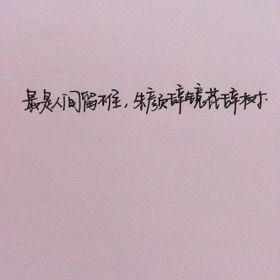 最是人间留不住，朱颜辞镜花辞树.